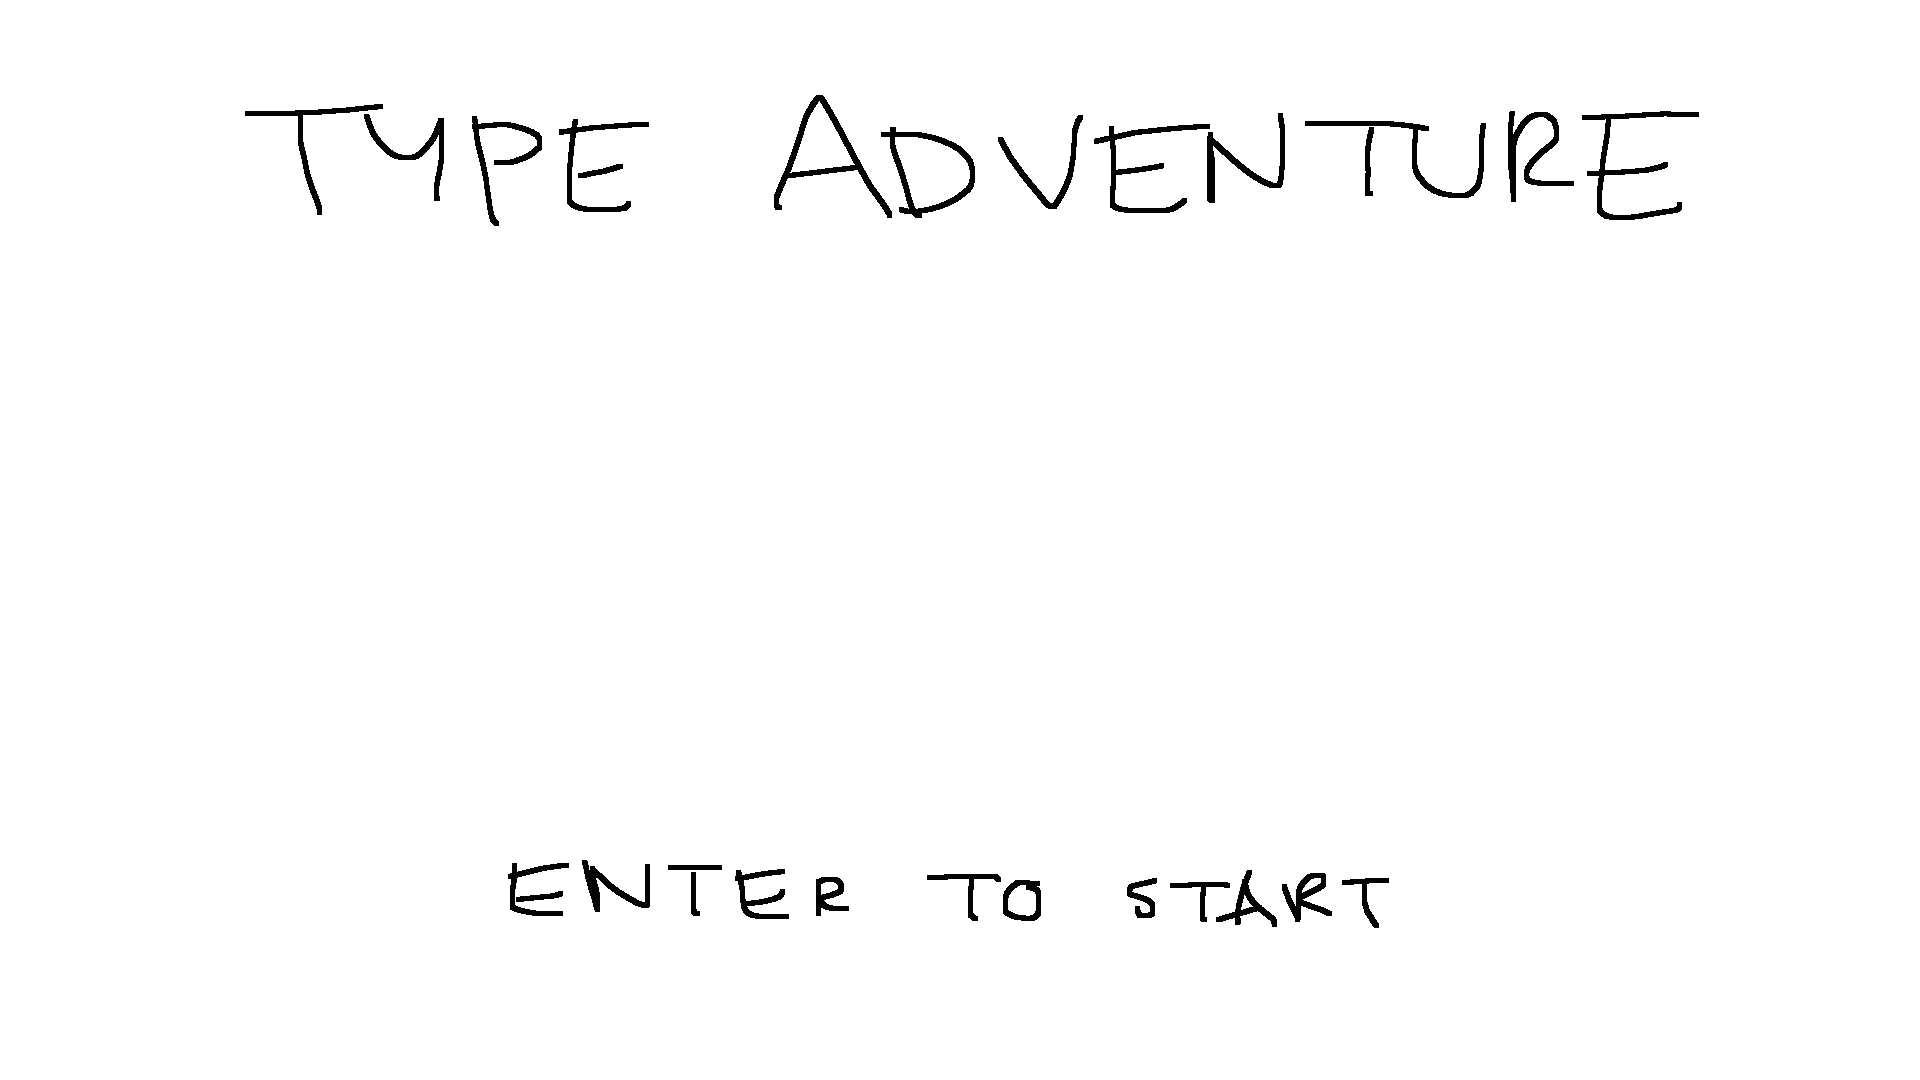 TYPE ADVENTURE
ENTER TO START